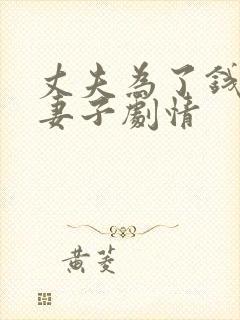 丈夫為了錢
妻子劇情
黃菱